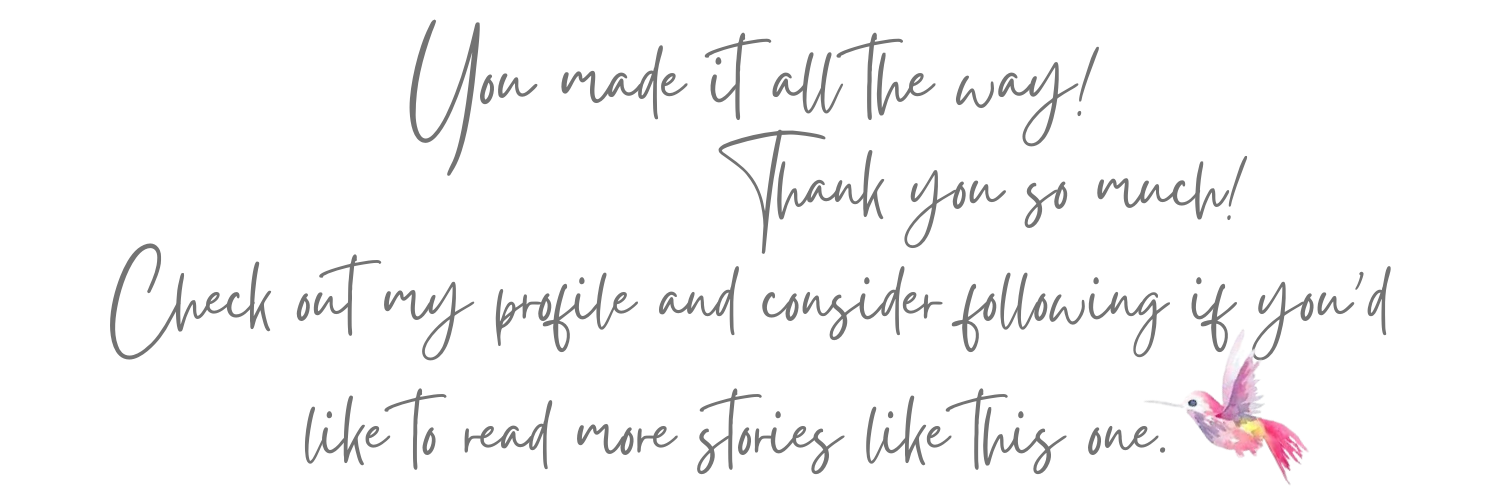 You made it all the way!
Thank you so much!
Check out my profile and consider following if you'd
like to read more stories like this one.